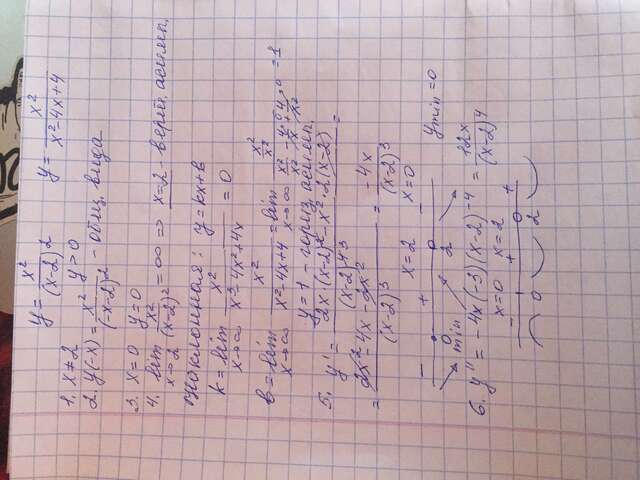 y = x²/(x-2)²   y = x²/(x²-4x+4)
1. x≠2   y>0
2. y(-x) = x²/(-x-2)² - общ. вида
3. x=0   y=0
4. lim x→2 x²/(x-2)² = ∞ ⇒ x=2 верт. асимп.
наклонная: y=kx+b
k = lim x→∞ x²/(x³-4x²+4x) = 0
b = lim x→∞ x²/(x²-4x+4) = lim x→∞ (x²/x²)/(x²/x² - 4x/x² + 4/x²) = 1
y=1 - гориз. асимп.
5. y' = (2x(x-2)² - x²·2(x-2))/(x-2)⁴ =
= (2x²-4x-2x²)/(x-2)³ = -4x/(x-2)³
x=2   x=0
- + -
0 2
min   y min = 0
6. y'' = -4x(-3)(x-2)⁻⁴ = 12x/(x-2)⁴
x=0   x=2
- + +
0 2